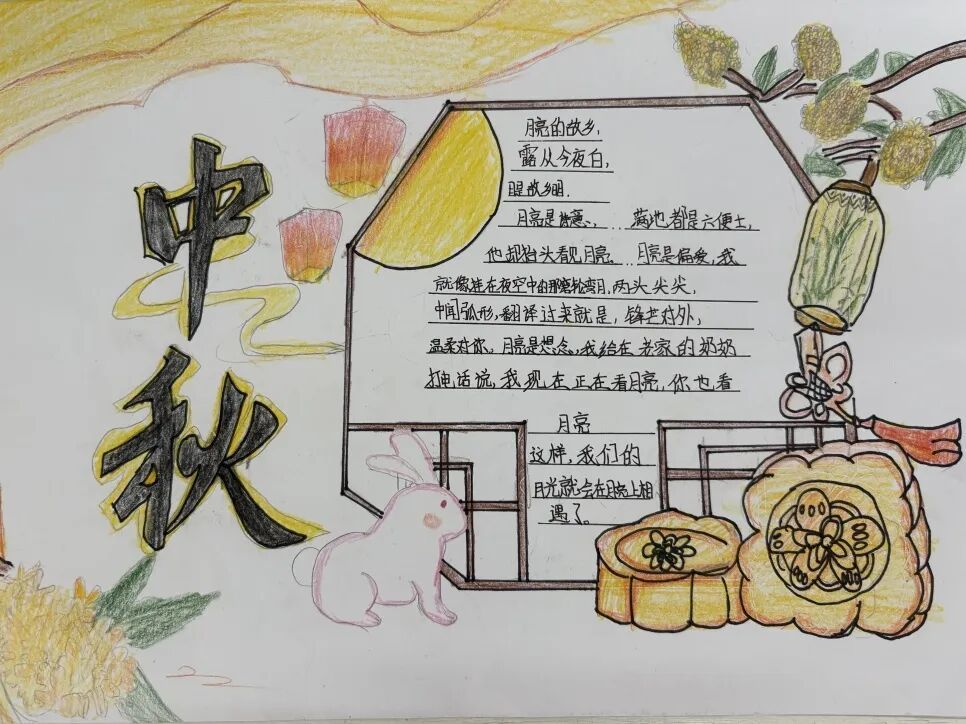 中秋
月亮的故乡,
露从今夜白,
是故乡明.
月亮是 ... 满地都是六便士,
他却抬头看见月亮 ... 月亮是偏爱, 我
就像挂在夜空中的那弯月, 两头尖尖,
中间弧形, 翻译过来就是, 锋芒对外,
温柔对你, 月亮是想念, 我给在老家的奶奶
打电话说, 我现在正在看月亮, 你也看
月亮
这样, 我们的
目光就会在月亮上相
遇了。